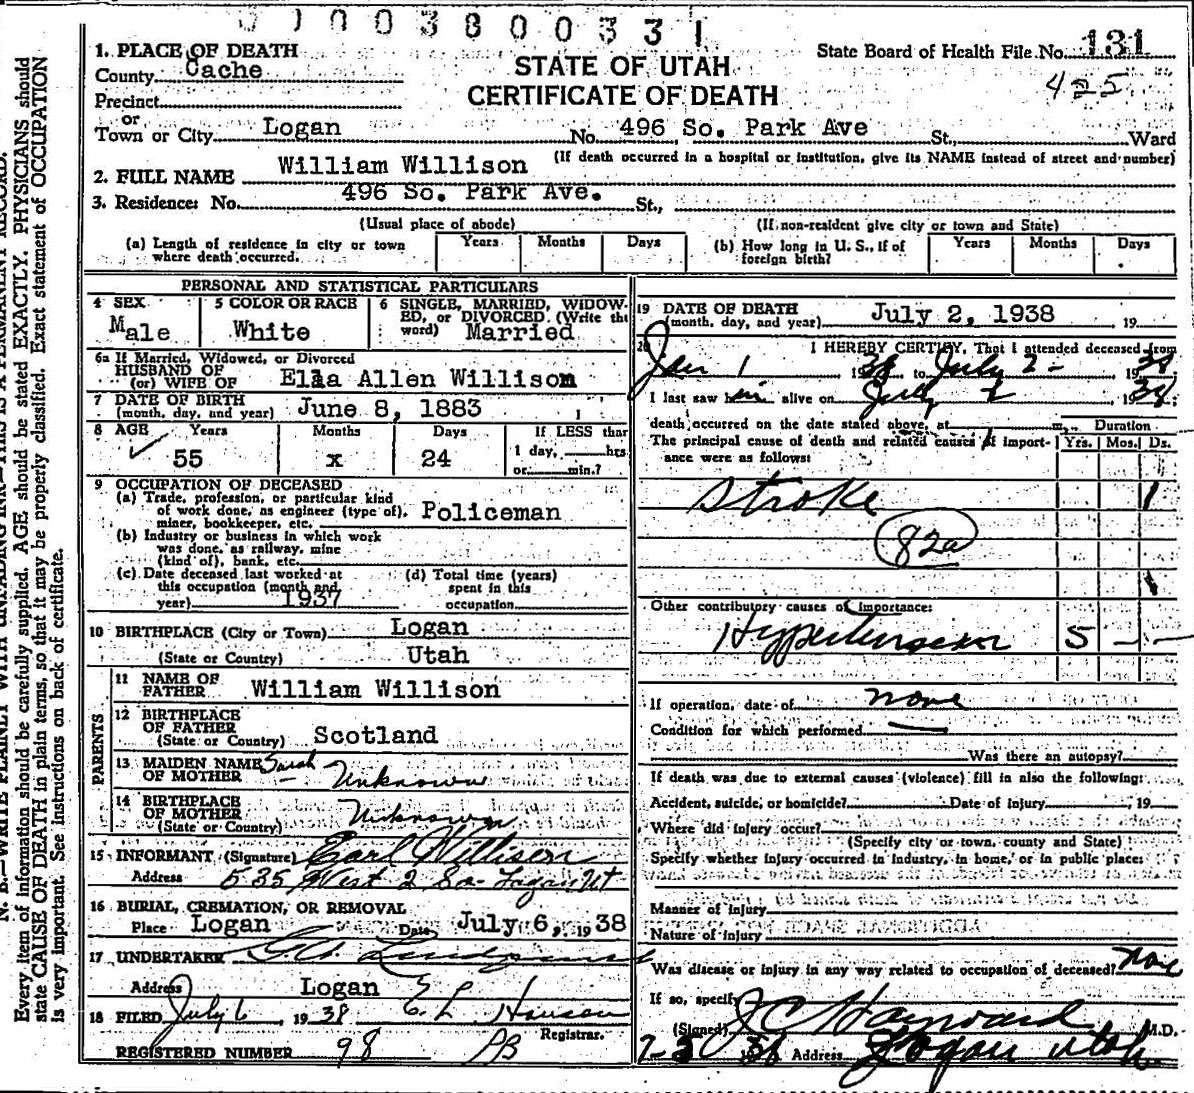 003800331
1. PLACE OF DEATH
County Cache
STATE OF UTAH
CERTIFICATE OF DEATH
State Board of Health File No. 131
425
Precinct
or
Town or City Logan No. 496 So. Park Ave St., Ward
(If death occurred in a hospital or institution, give its NAME instead of street and number)
2. FULL NAME William Willison
3. Residence: No. 496 So. Park Ave. St.,
(Usual place of abode) (If non-resident give city or town and State)
(a) Length of residence in city or town where death occurred. Years Months Days
(b) How long in U. S., if of foreign birth? Years Months Days
PERSONAL AND STATISTICAL PARTICULARS
4 SEX Male
5 COLOR OR RACE White
6 SINGLE, MARRIED, WIDOWED, OR DIVORCED. (Write the word) Married
6a If Married, Widowed, or Divorced
HUSBAND OF
(or) WIFE OF Ella Allen Willison
7 DATE OF BIRTH
(month, day, and year) June 8, 1883
8 AGE Years Months Days If LESS than
55 x 24 1 day, hrs
or min.?
9 OCCUPATION OF DECEASED
(a) Trade, profession, or particular kind
of work done, as engineer (type of),
miner, bookkeeper, etc. Policeman
(b) Industry or business in which work
was done, as railway, mine
(kind of), bank, etc.
(c) Date deceased last worked at
this occupation (month and
year) 1937
(d) Total time (years)
spent in this
occupation
10 BIRTHPLACE (City or Town) Logan
(State or Country) Utah
PARENTS
11 NAME OF
FATHER William Willison
12 BIRTHPLACE
OF FATHER
(State or Country) Scotland
13 MAIDEN NAME
OF MOTHER Sarah Unknown
14 BIRTHPLACE
OF MOTHER
(State or Country) Unknown
15 INFORMANT (Signature) Earl Willison
Address 535 West 2 So- Logan Ut
16 BURIAL, CREMATION, OR REMOVAL
Place Logan Date July 6, 1938
17 UNDERTAKER
Address Logan
18 FILED July 6, 1938 E. L. Hansen
Registrar.
REGISTERED NUMBER 98 PB
19 DATE OF DEATH
(month, day, and year) July 2, 1938 19
20 I HEREBY CERTIFY, That I attended deceased from
Jan 1 1938 to July 2- 1938
I last saw him alive on July 2 1938
death occurred on the date stated above, at m.
Duration
The principal cause of death and related causes of importance were as follows: Yrs. Mos. Ds.
Stroke 1
82a
Other contributory causes of importance:
Hypertension 5 - -
If operation, date of none
Condition for which performed
Was there an autopsy?
If death was due to external causes (violence) fill in also the following:
Accident, suicide, or homicide? Date of injury , 19
Where did injury occur?
(Specify city or town, county and State)
Specify whether injury occurred in industry, in home, or in public place:
Manner of injury
Nature of injury
Was disease or injury in any way related to occupation of deceased? none
If so, specify
(Signed) J C Hayward M.D.
7-5 1938 Address Logan Utah.
N. B.—WRITE PLAINLY WITH UNFADING INK—THIS IS A PERMANENT RECORD.
Every item of information should be carefully supplied. AGE should be stated EXACTLY. PHYSICIANS should
state CAUSE OF DEATH in plain terms, so that it may be properly classified. Exact statement of OCCUPATION
is very important. See instructions on back of certificate.